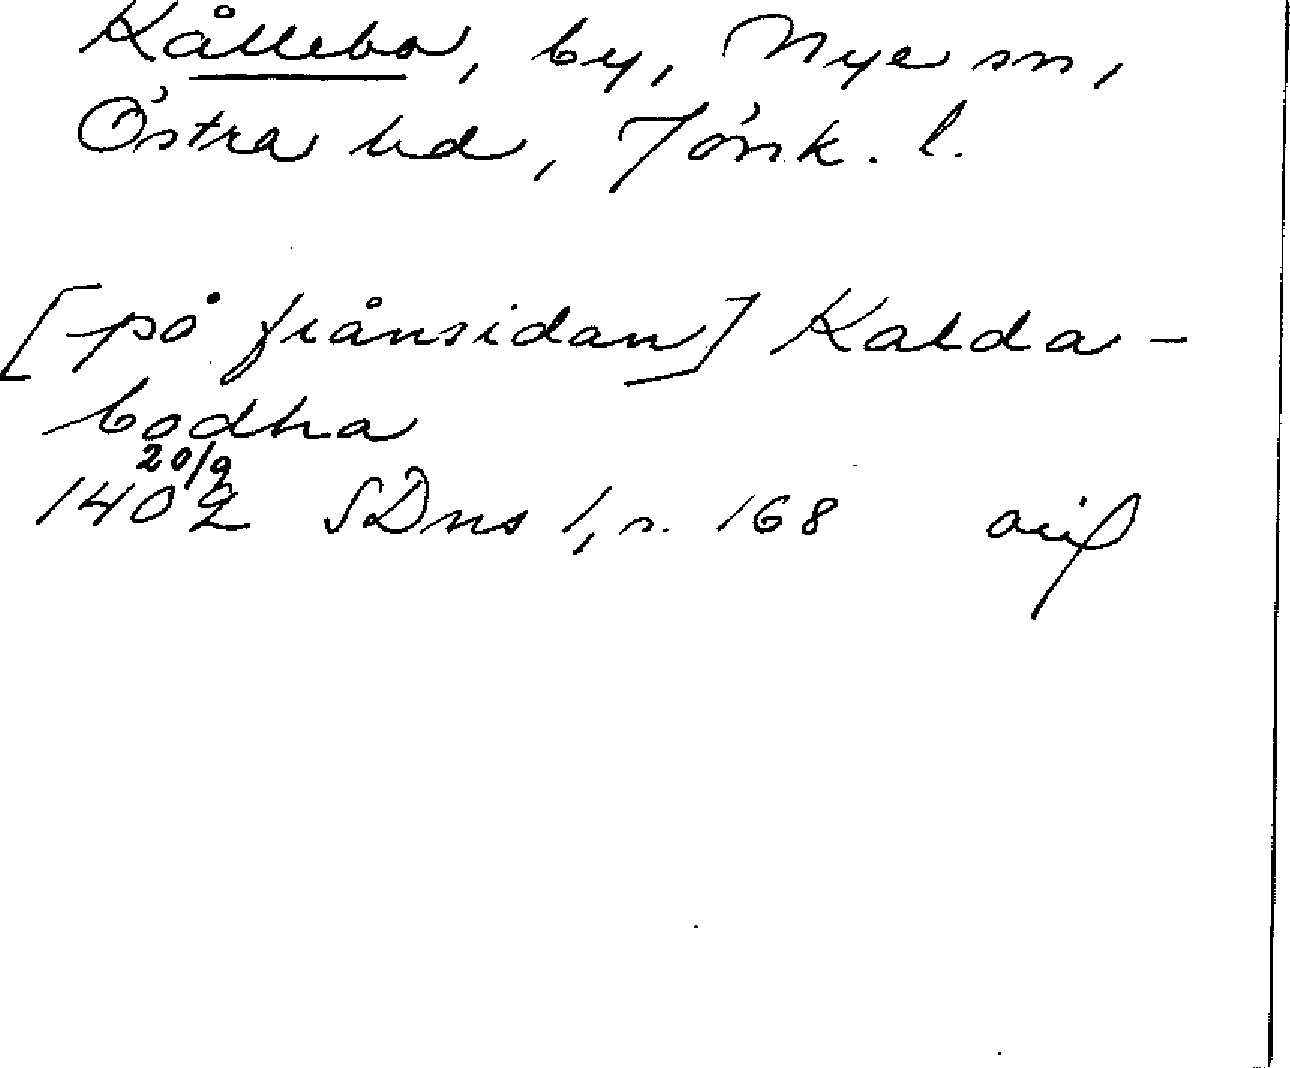 Kållebo, by, Nye sn,
Östra hd, Jönk. l.
[på frånsidan] Kalda-
bodha
20/9
1402 SDns 1, s. 168 avs